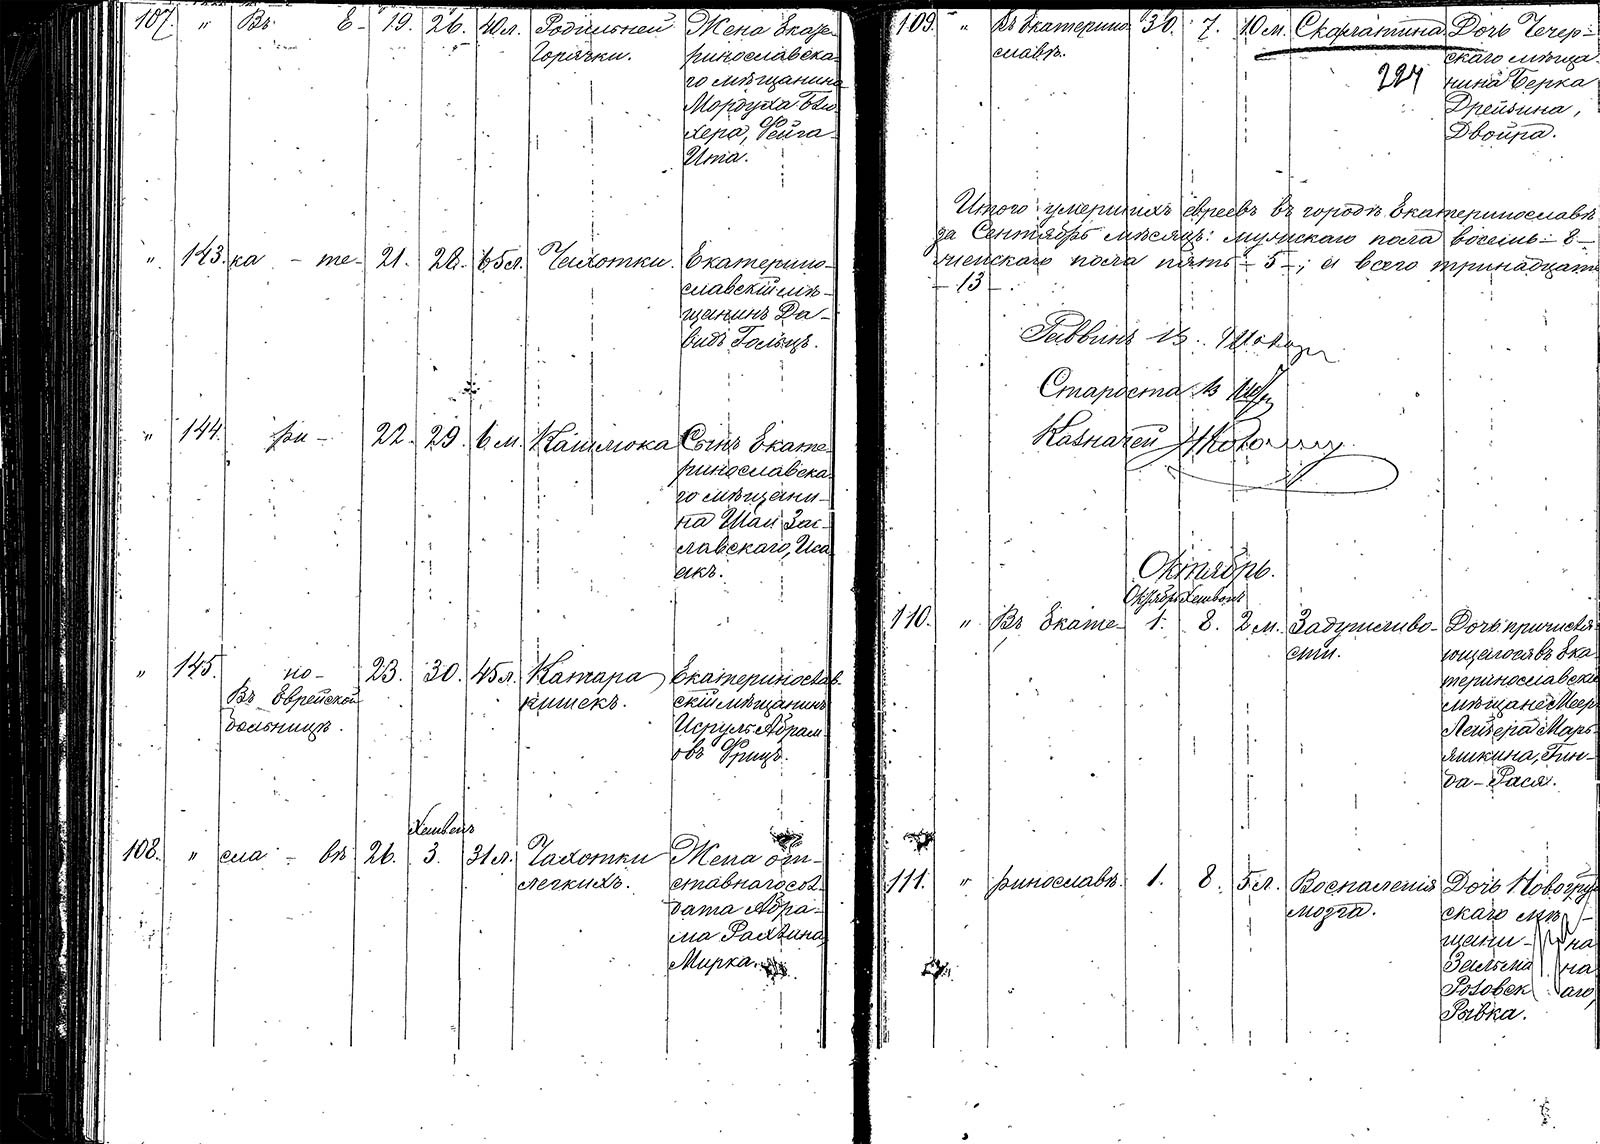 107. " Въ Е- 19. 26. 40 л. Родильной Жена Екате-
горячки. ринославска-
го мѣщанина
Мордуха
хера, Фейга-
Ита.
" 143. ка - те- 21. 28. 65 л. Чахотки. Екатерино-
славскій мѣ-
щанинъ Да-
видъ Гольцъ.
" 144. ри- 22. 29. 6 м. Кашлюка Сынъ Екате-
ринославска-
го мѣщани-
на Шаи Зас-
лавскаго, Иса-
акъ.
" 145. но- 23. 30. 45 л. Катара Екатеринослав-
Въ Еврейской кишекъ. скій мѣщанинъ
больницѣ. Исруль Абрам-
овъ Фрицъ.
Хешвенъ
108. " сла - вѣ 26. 3. 31 л. Чахотки Жена от-
легкихъ. ставнаго сол-
дата Абра-
ма Рахлина,
Мирка.
109. " Въ Екатерино- 30. 7. 10 м. Скарлатина Дочь Чечер-
славѣ. скаго мѣща-
224 нина Берка
Дрейзина,
Двойра.
Итого умершихъ евреевъ въ городѣ Екатеринославѣ
за Сентябрь мѣсяцъ: мужскаго пола восемь - 8 -
женскаго пола пять - 5 -; а всего тринадцать
- 13 -
Раввинъ
Староста
Казначей
Октябрь.
Октябрь Хешвенъ
110. " Въ Екате- 1. 8. 2 м. Задушливо- Дочь причисля-
сти. ющагося въ Ека-
теринославскіе
мѣщане Меер-
Лейзера Марь-
яшкина, Гин-
да-Рася.
111. " ринославѣ. 1. 8. 5 л. Воспаленія Дочь Новогруд-
мозга. скаго мѣ-
щани- на
Зельма на
Розовск аго,
Рывка.